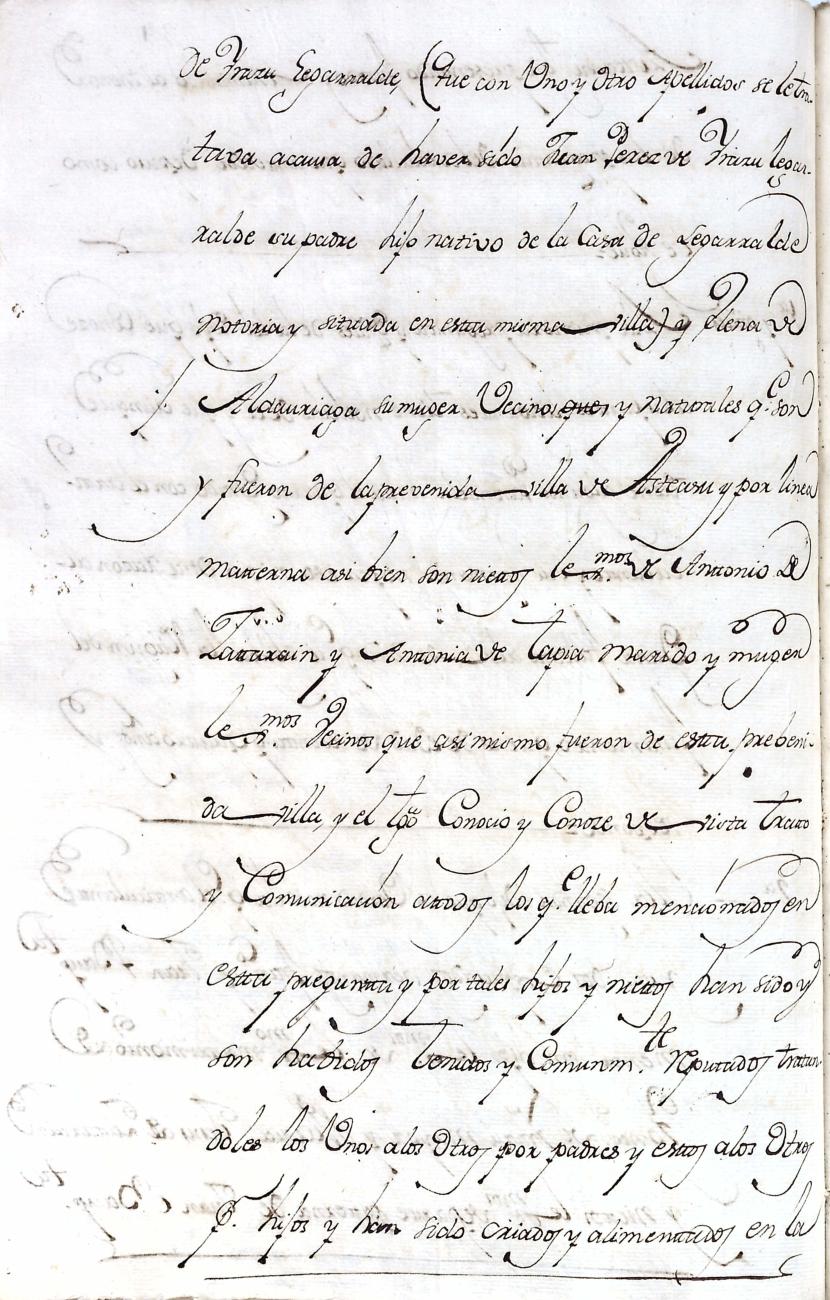 de Yrazu Legarralde, (que con Uno y Otro Apellidos se le tra-
tava acausa de haver sido Juan Perez de Yrazu legar-
ralde su padre hijo nativo de la Casa de Legarralde
notoria y situada en estta misma villa) y Elena de
Aldauriaga su muger Vecinos ques y naturales q.e son
y fueron de la prevenida villa de Asteasu y por linea
matterna asi bien son niettos lex.mos de Anttonio de
Lattarain y Anttonia de Tapia marido y muger
lex.mos Vecinos que asimismo fueron de estta prebeni-
da villa, y el tgõ Conocio y Conoze de vista tratto
y Comunicación attodos los q.e lleba mencionados en
estta pregunta y por tales hijos y niettos han sido y
son habidos tenidos y Comunm.te Reputados tratan-
doles los Unos alos Otros por padres y esttos alos Otros
p.r hijos y han sido criados y alimenttados en la